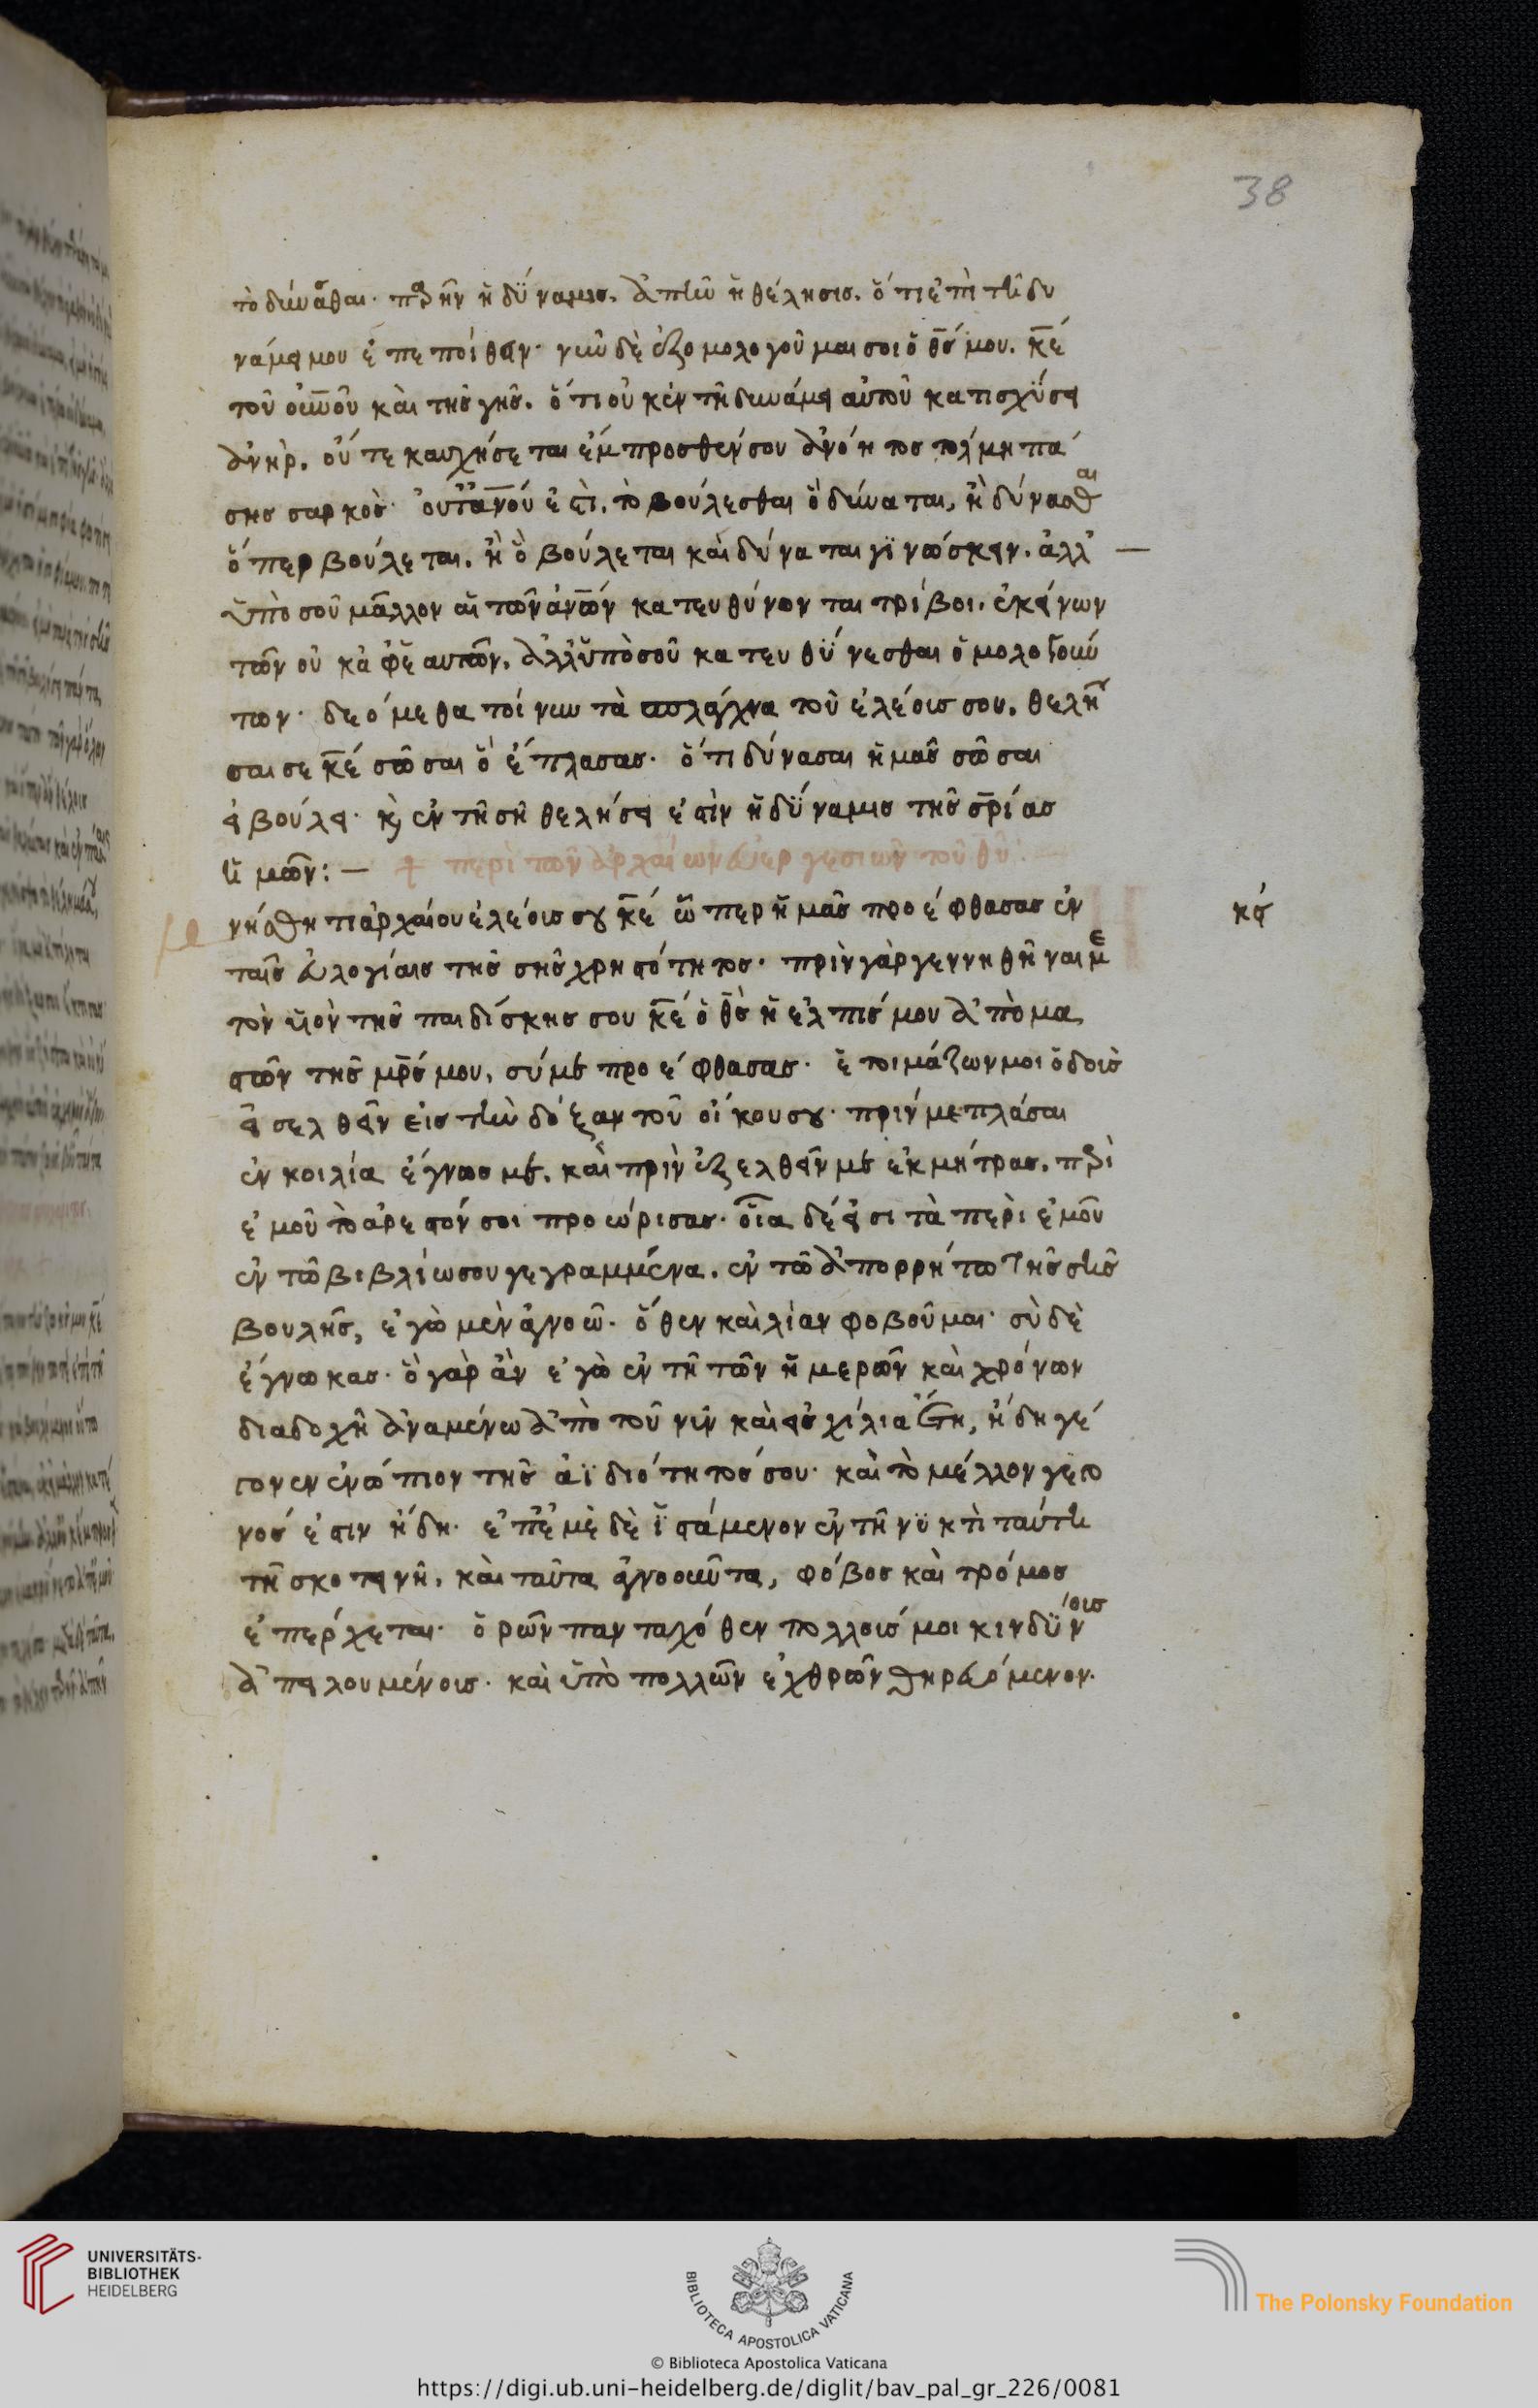 38
τὸ δύνασθαι· παρῆν ἡ δύναμις. ἀπῆν ἡ θέλησις. ὅτι ἐπὶ τῇ δυ
νάμει μου ἐπεποίθειν· νῦν δὲ ἐξομολογοῦμαι σοι ὁ θς μου. κε
τοῦ οὐνοῦ καὶ τῆς γῆς. ὅτι οὐκ ἐν τῇ δυνάμει αὐτοῦ κατισχύσει
ἀνήρ. οὔτε καυχήσεται ἔμπροσθέν σου ἀνόητος τολμη πά
σης σαρκὸς· οὔτε ἀνου ἐστὶ. τὸ βούλεσθαι ὃ δύναται, ἢ δύνασθαι
ὅπερ βούλεται. ἢ ὃ βούλεται καὶ δύναται γϊνώσκειν. ἀλλ' —
ὑπὸ σοῦ μᾶλλον αἱ τῶν ἀνων κατευθύνονται τρίβοι. ἐκείνων
τῶν οὐκ ἀφ' ἑαυτῶν, ἀλλ' ὑπὸ σοῦ κατευθύνεσθαι ὁμολογούν
των· δεόμεθα τοίνυν τὰ σπλάγχνα τοῦ ἐλέους σου. θελῆ
σαι σε κε σῶσαι ὃ ἔπλασας· ὅτι δύνασαι ἡμᾶς σῶσαι
εἰ βούλει· κ ἐν τῇ σῇ θελήσει ἐστὶν ἡ δύναμις τῆς σρίας
ἡμῶν: — + περὶ τῶν ἀρχαίων εὐεργεσιῶν τοῦ θυ: —
κς
νήσθητι ἀρχαίου ἐλέους σου κε ᾧπερ ἡμᾶς προέφθασας ἐν
ταῖς εὐλογίαις τῆς σῆς χρηστότητος· πρὶν γὰρ γεννηθῆναι με
τὸν υἱὸν τῆς παιδίσκης σου κε ὁ θς ἡ ἐλπίς μου ἀπὸ μα
στῶν τῆς μρς μου, σύ με προέφθασας· ἑτοιμάζων μοι ὁδοὺς
εἰσελθεῖν εἰς τὴν δόξαν τοῦ οἴκου σου· πρίν με πλάσαι
ἐν κοιλία ἔγνως με. καὶ πρὶν ἐξελθεῖν με ἐκ μήτρας. περὶ
ἐμοῦ τὸ ἀρεστόν σοι προώρισας· οἷα δέ εἰσι τὰ περὶ ἐμοῦ
ἐν τῶ βιβλίω σου γεγραμμένα. ἐν τῶ ἀπορρήτω τῆς σῆς
βουλῆς, ἐγὼ μὲν ἀγνοῶ· ὅθεν καὶ λίαν φοβοῦμαι· σὺ δὲ
ἔγνωκας· ὃ γὰρ ἂν ἐγὼ ἐν τῇ τῶν ἡμερῶν καὶ χρόνων
διαδοχῇ ἀναμένω ἀπὸ τοῦ νῦν καὶ εἰς χίλια ἔτη, ἤδη γέ
γονεν ἐνώπιον τῆς ἀϊδιότητός σου· καὶ τὸ μέλλον γεγο
νός ἐστιν ἤδη· ἐπ' ἐμὲ δὲ ἱστάμενον ἐν τῇ νϋκτὶ ταύτῃ
τῇ σκοτεινῇ, καὶ ταῦτα ἀγνοοῦντα, φόβος καὶ τρόμος
ἐπέρχεται· ὁρῶν πανταχόθεν πολλούς μοι κινδύνους
ἀπειλουμένους· καὶ ὑπὸ πολλῶν ἐχθρῶν θηρευόμενον.
UNIVERSITÄTS-
BIBLIOTHEK
HEIDELBERG
BIBLIOTECA APOSTOLICA VATICANA
© Biblioteca Apostolica Vaticana
The Polonsky Foundation
https://digi.ub.uni-heidelberg.de/diglit/bav_pal_gr_226/0081